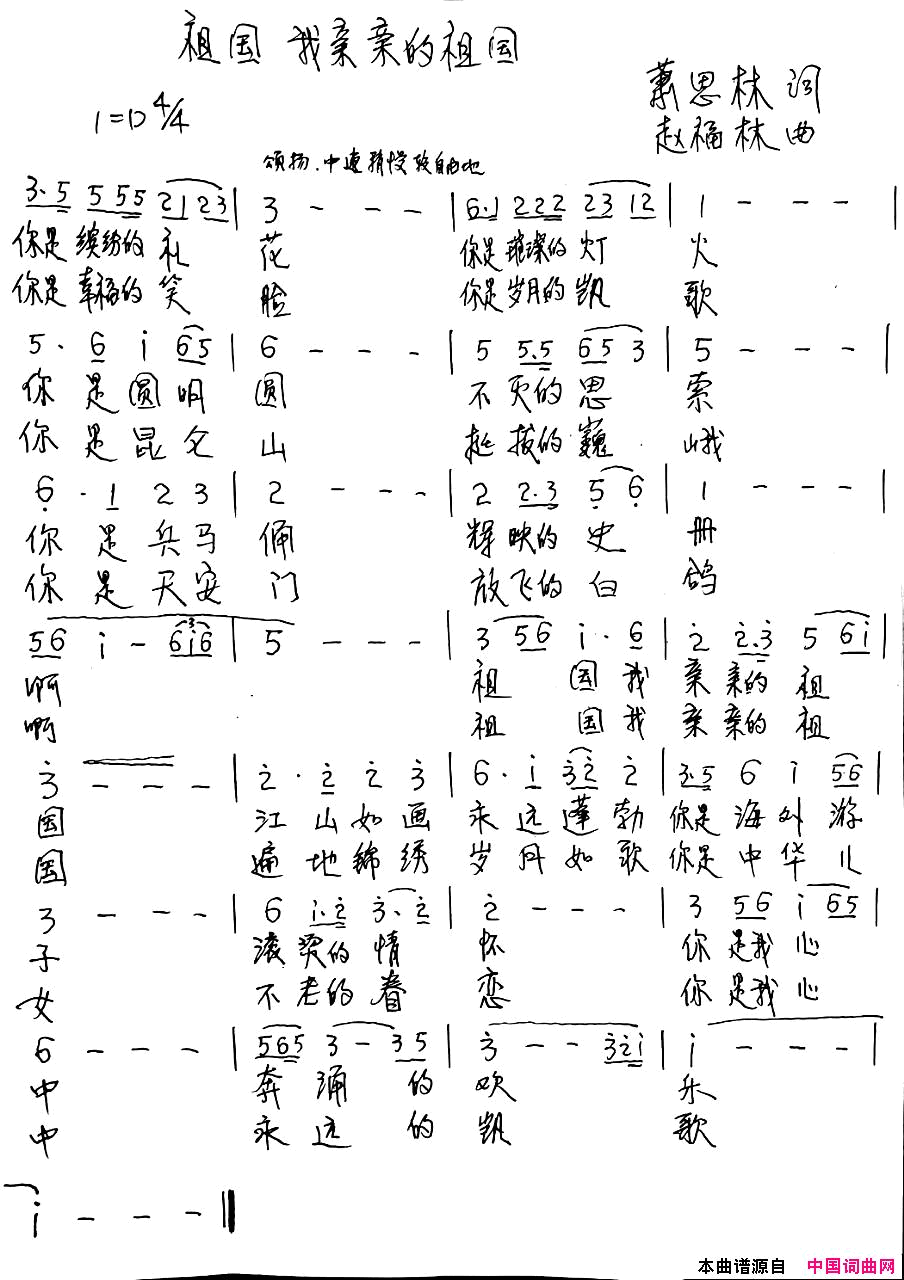 祖国 我亲亲的祖国
萧思林 词
1=D 4/4
赵福林 曲
颂扬.中速稍慢较自由地
3·5 5 55 2123 | 3 - - - | 6·1 222 23 12 | 1 - - - |
你是缤纷的礼 花 你是璀璨的灯 火
你是幸福的笑 脸 你是岁月的凯 歌
5· 6 i 65 | 6 - - - | 5 5·5 65 3 | 5 - - - |
你 是 圆 明 圆 不 灭的 思 索
你 是 昆 仑 山 挺 拔的 巍 峨
6· 1 2 3 | 2 - - - | 2 2·3 5 6 | 1 - - - |
你 是 兵 马 俑 辉 映的 史 册
你 是 天 安 门 放 飞的 白 鸽
56 i - 6i6 | 5 - - - | 3 56 i· 6 | 2 2·3 5 6i |
啊 祖 国 我 亲 亲的 祖
啊 祖 国 我 亲 亲的 祖
3 - - - | 2· 2 2 3 | 6· i 32 2 | 3·5 6 i 56 |
国 江 山 如 画 永 远 蓬 勃 你是 海 外 游
国 遍 地 锦 绣 岁 月 如 歌 你是 中 华 儿
3 - - - | 6 i·2 3·2 | 2 - - - | 3 56 i 65 |
子 滚 烫的 情 怀 你 是我 心
女 不 老的 眷 恋 你 是我 心
6 - - - | 565 3 - 35 | 3 - - 32i | i - - - |
中 奔 涌 的 欢 乐
中 永 远 的 凯 歌
i - - - ‖
本曲谱源自 中国词曲网